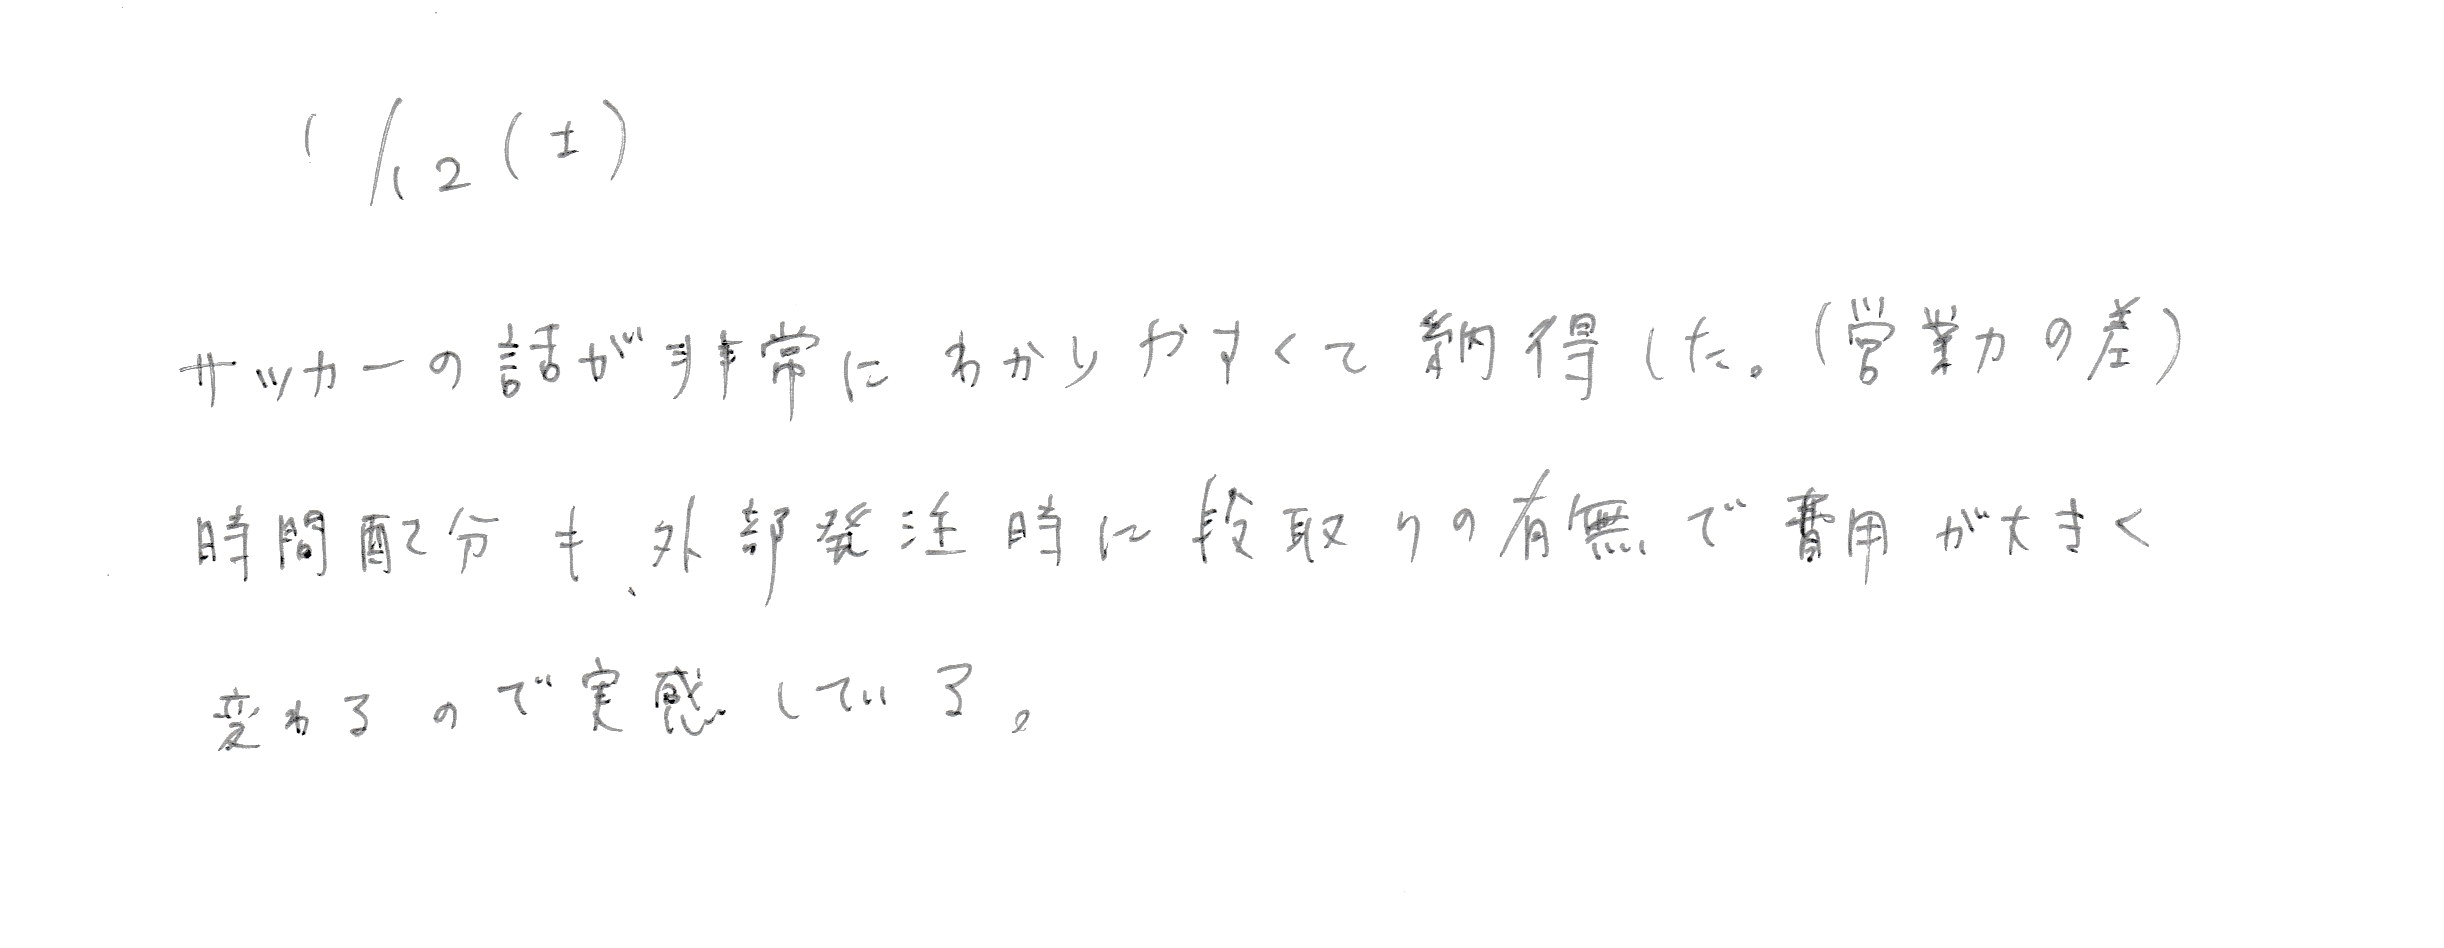 1/12(土)
サッカーの話が非常にわかりやすくて納得した。(営業力の差)
時間配分も、外部発注時に段取りの有無で費用が大きく
変わるので実感している。